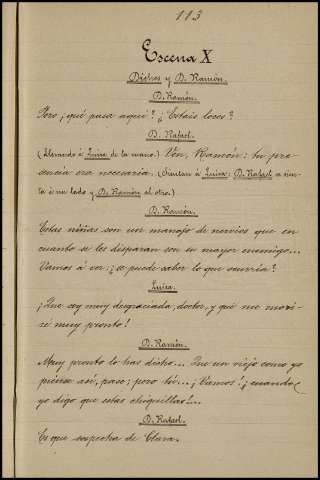 113
Escena X
Dichos y D. Ramón.
D. Ramón.
Pero ¿qué pasa aquí? ¿Estais locos?
D. Rafael.
(Llevando á Luisa de la mano.) Ven, Ramón: tu pre-
sencia era necesaria. (Sientan á Luisa; D. Rafael se sien-
ta á un lado y D. Ramón al otro.)
D. Ramón.
Estas niñas son un manojo de nervios que en
cuanto se les disparan son su mayor enemigo...
Vamos á ver; ¿se puede saber lo que ocurría?
Luisa.
¡Que soy muy desgraciada, doctor, y que me mori-
ré muy pronto!
D. Ramón.
Muy pronto lo has dicho... Que un viejo como yo
piense así, pase; pero tú... ¡Vamos! ¡cuando
yo digo que estas chiquillas!...
D. Rafael.
Es que sospecha de Clara.